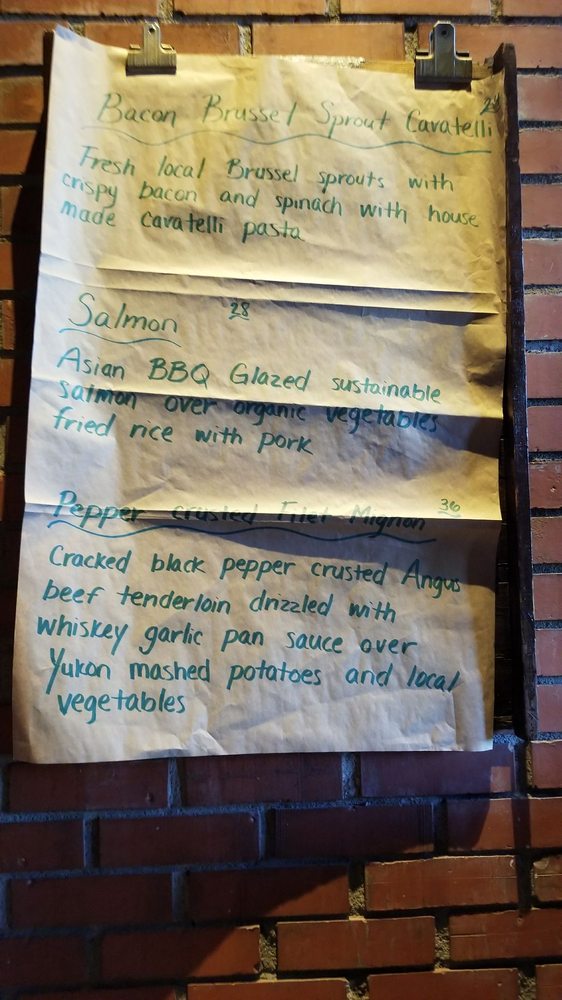 Bacon Brussel Sprout Cavatelli
Fresh local Brussel sprouts with
crispy bacon and spinach with house
made cavatelli pasta
Salmon 28
Asian BBQ Glazed sustainable
salmon over organic vegetables
fried rice with pork
Pepper crusted Filet Mignon 36
Cracked black pepper crusted Angus
beef tenderloin drizzled with
whiskey garlic pan sauce over
Yukon mashed potatoes and local
vegetables